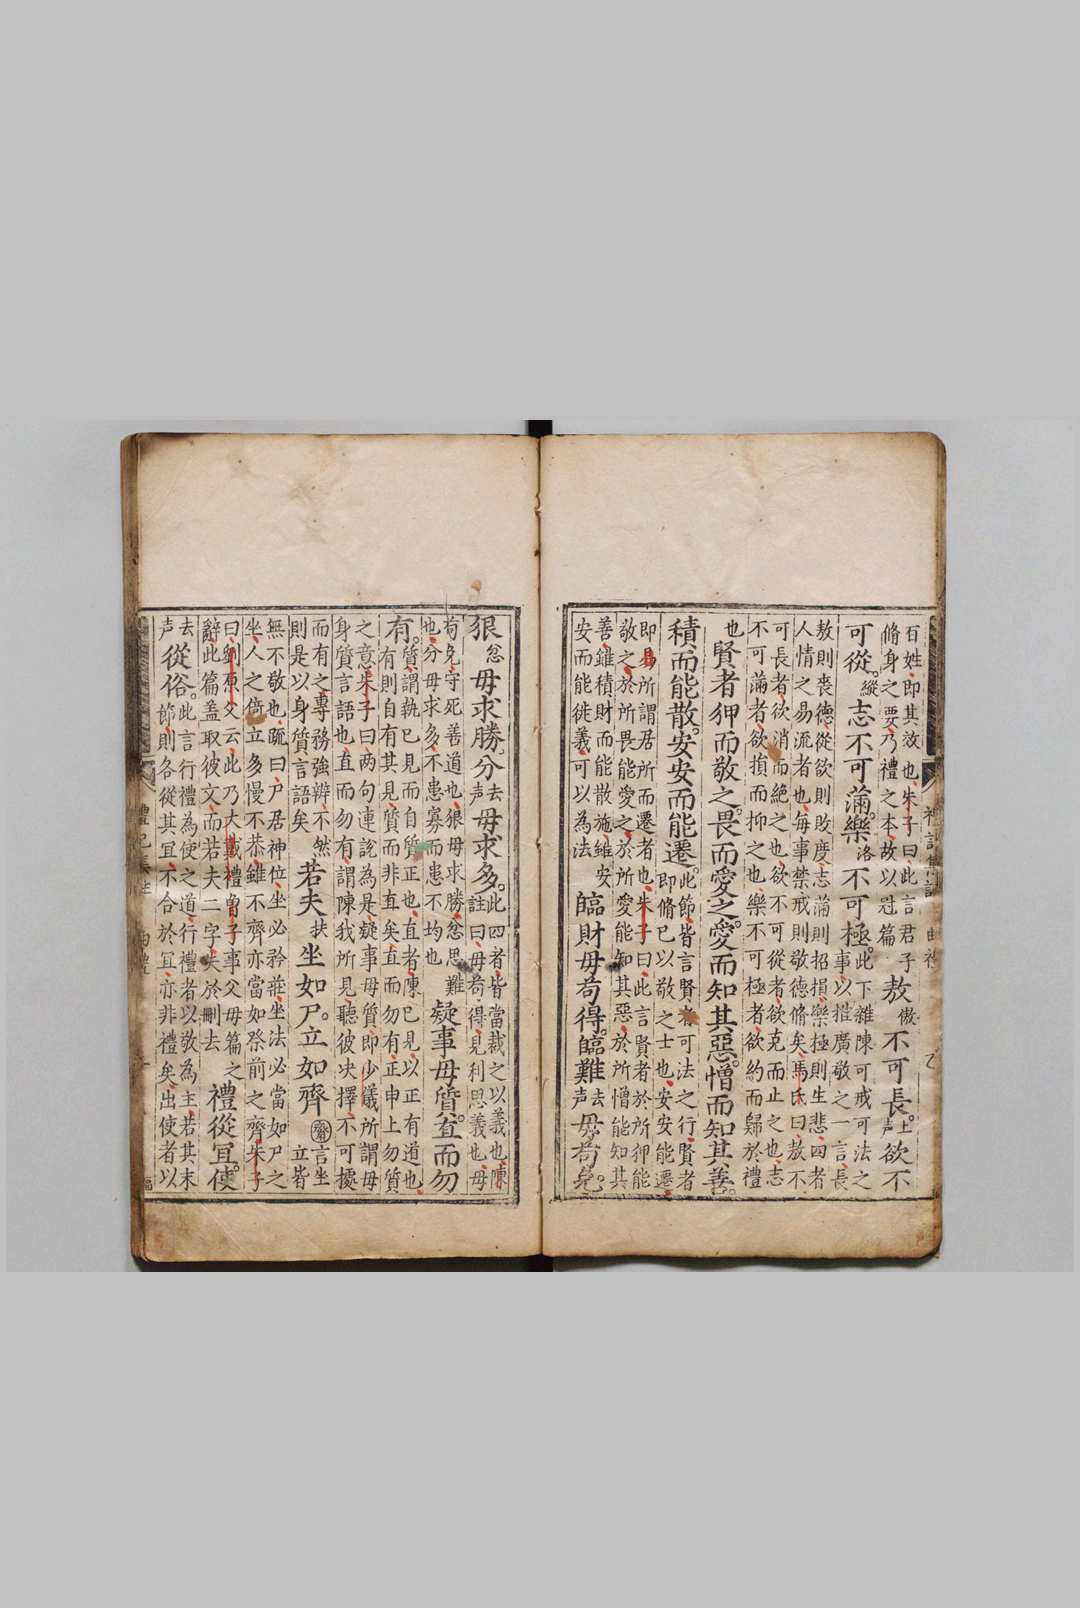 百姓即其效也朱子曰此言君子
脩身之要乃禮之本故以冠篇
敖傲不可長上声欲不
可從縱志不可滿樂洛不可極
此下雜陳可戒可法之
事以推廣敬之一言長
敖則喪德從欲則敗度志滿則招損樂極則生悲四者
人情之易流者也每事禁戒則敬德脩矣馬氏曰敖不
可長者欲消而絶之也欲不可從者欲克而止之也志
不可滿者欲損而抑之也樂不可極者欲約而歸於禮
也賢者狎而敬之畏而愛之愛而知其惡憎而知其善
積而能散安安而能遷
此節皆言賢者可法之行賢者
即脩已以敬之士也安安能遷
即易所謂居所而遷者也朱子曰此言賢者於所狎能
敬之於所畏能愛之於所愛能知其惡於所憎能知其
善雖積財而能散施雖安
安而能徙義可以為法
臨財毋苟得臨難去声毋苟免
狠忿毋求勝分去声毋求多
此四者皆當裁之以義也陳
註曰毋苟得見利思義也毋
苟免守死善道也狠毋求勝忿思難
也分毋求多不患寡而患不均也
疑事毋質直而勿
有
質謂執已見而自質正也直者陳已見以正有道也
有則自有其見質而非直矣直而勿有正申上勿質
之意朱子曰两句連說為是疑事毋質即少儀所謂毋
身質言語也直而勿有謂陳我所見聽彼决擇不可據
而有之專務強辨不然
則是以身質言語矣
若夫扶坐如尸立如齊齋
言坐
立皆
無不敬也疏曰尸居神位坐必矜莊坐法必當如尸之
坐人之倚立多慢不恭雖不齊亦當如祭前之齊朱子
曰劉原父云此乃大戴禮曾子事父母篇之
辭此篇盖取彼文而若夫二字失於刪去
禮從宜使
去声從俗
此言行禮為使之道行禮者以敬為主若其末
節則各從其宜不合於宜亦非禮矣出使者以
禮記集註